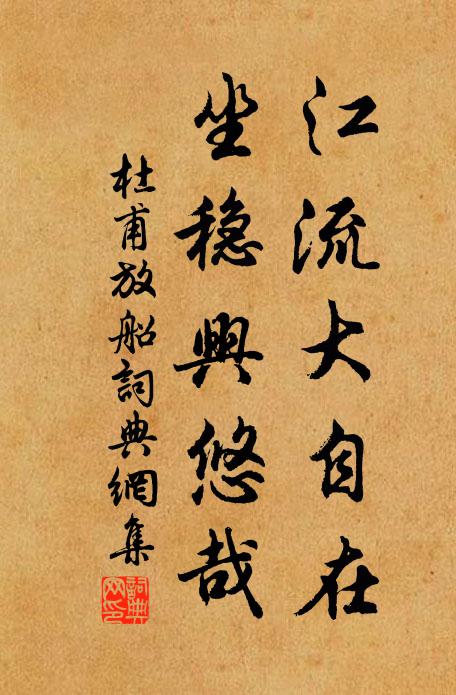 江流大自在
坐稳興悠哉
杜甫放船詞典網集
詞典網印